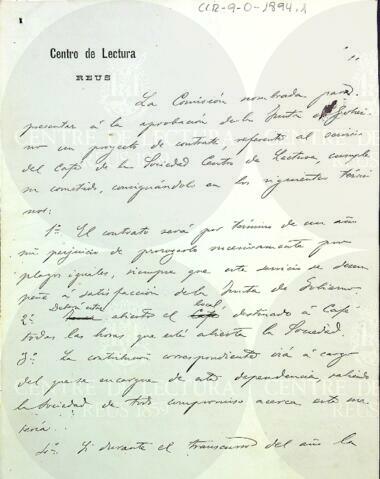 CLR-9-0-1894.1
1
Centro de Lectura
REUS
La Comisión nombrada para
presentar á la aprobación de la Junta de Gobier-
no un proyecto de contrato, referente al servicio
del Café de la Sociedad Centro de Lectura, cumple
su cometido, consignándolo en los siguientes térmi-
nos:
1º El contrato será por término de un año
sin perjuicio de prorogarlo sucesivamente por
plazos iguales, siempre que este servicio se desem-
peñe á satisfacción de la Junta de Gobierno.
2º Deberá estar abierto el local destinado á Café
todas las horas que esté abierta la Sociedad.
3º La contribución correspondiente irá á cargo
del que se encargue de esta dependencia, saliendo
la Sociedad de todo compromiso acerca esta ma-
teria.
4º Si durante el transcurso del año la